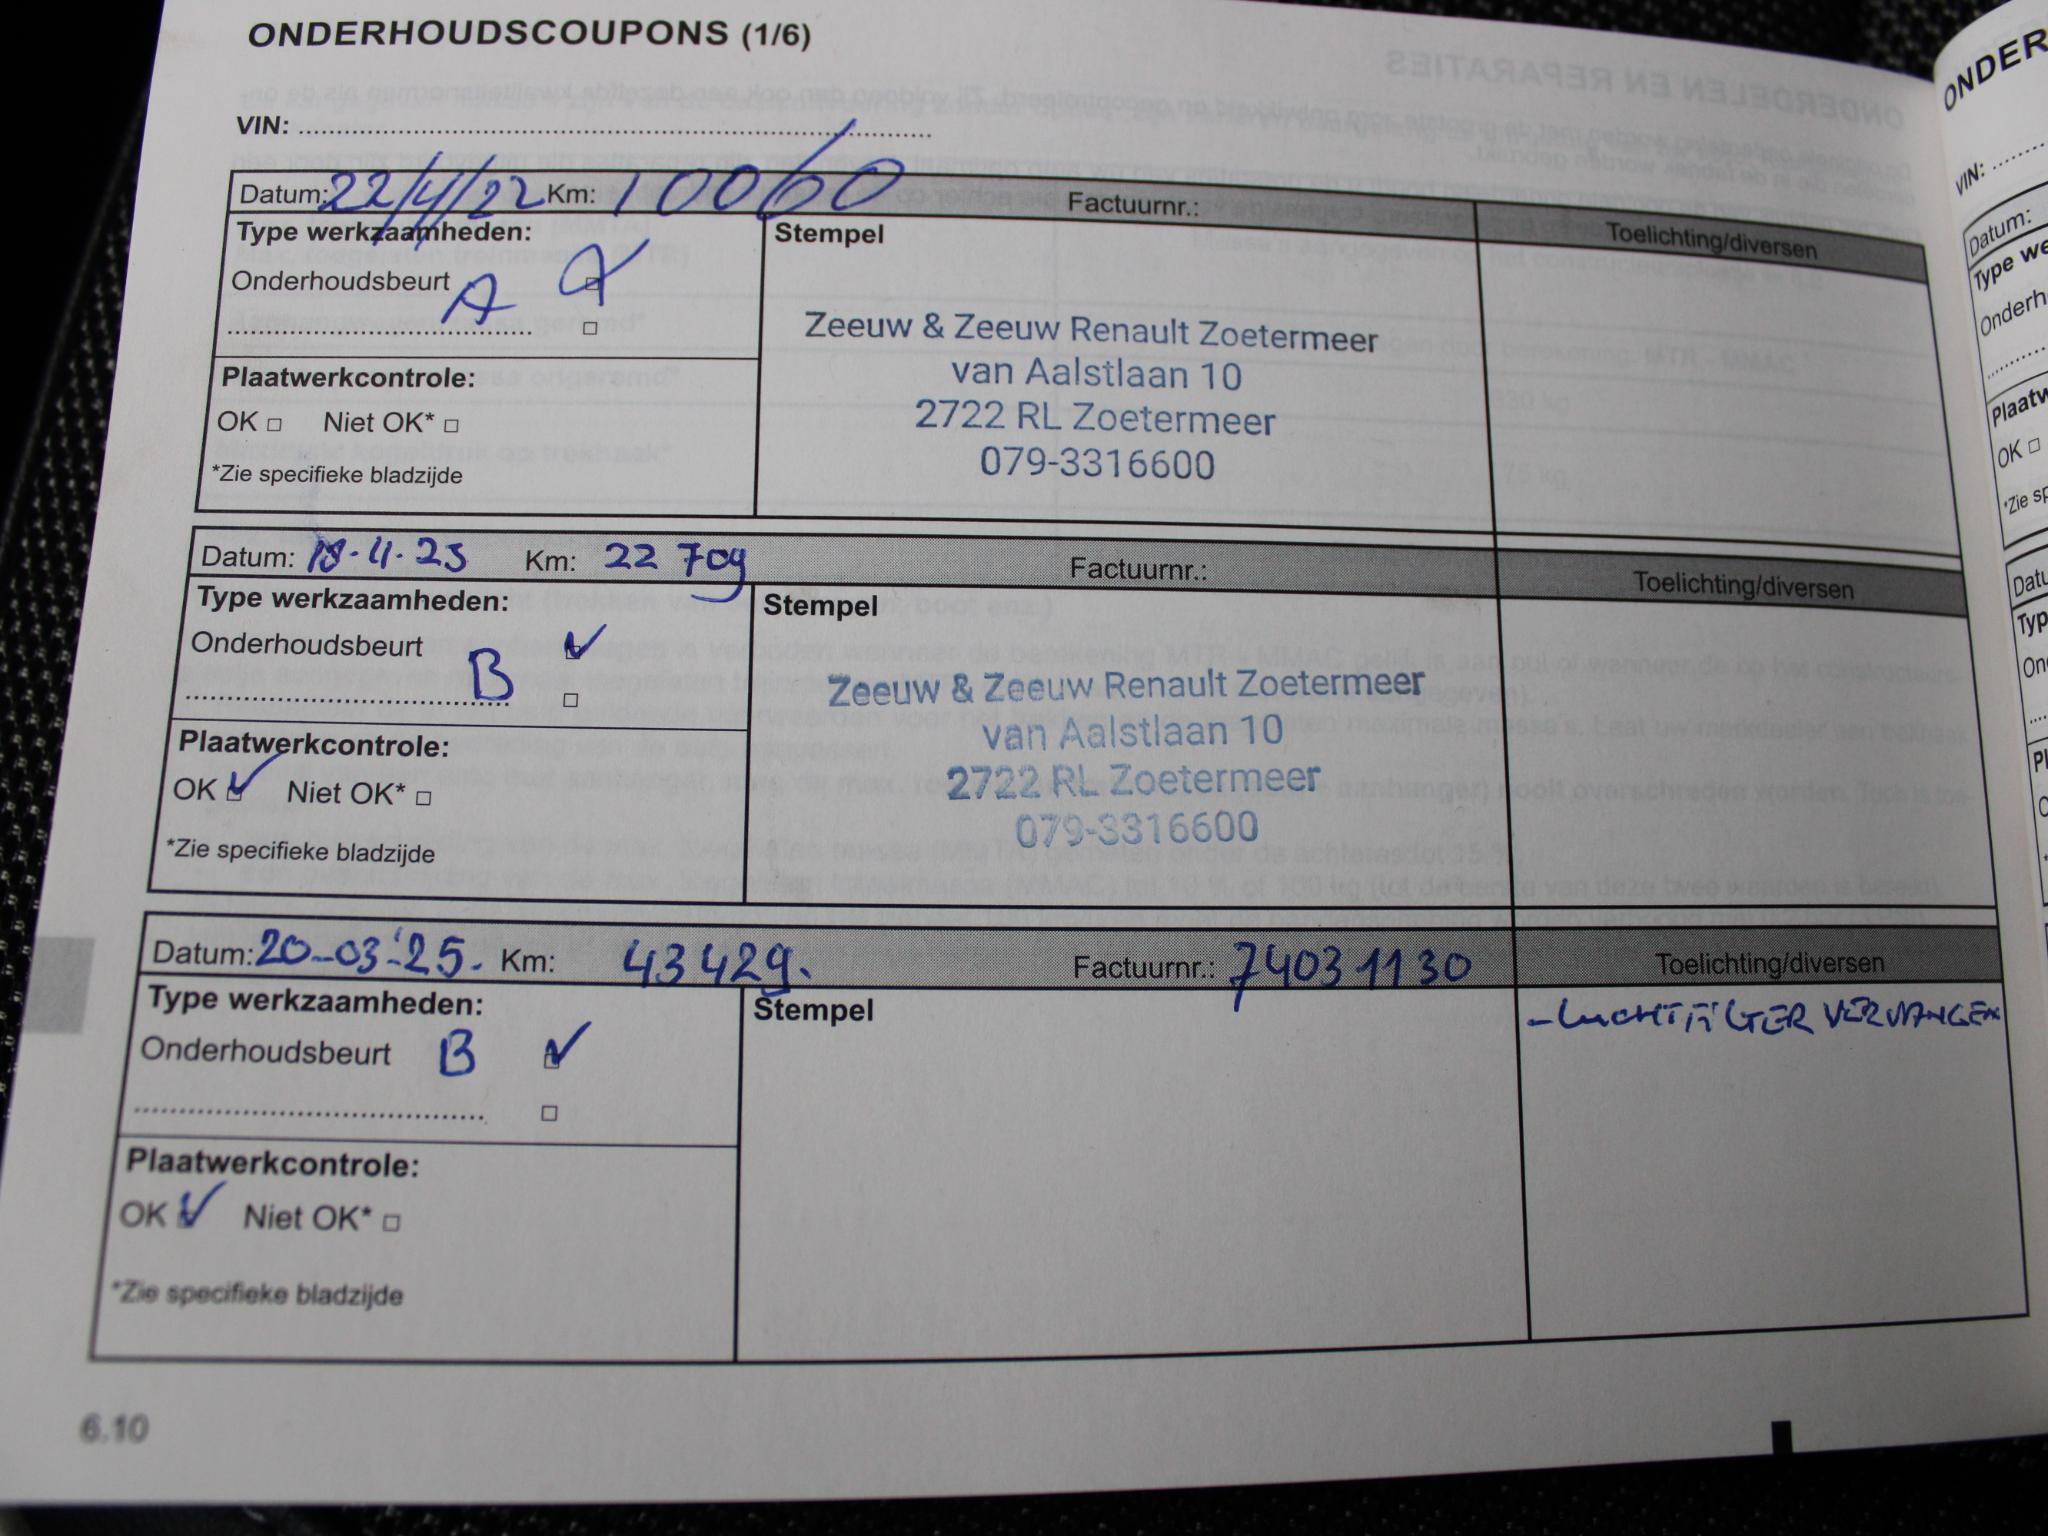 ONDERHOUDSCOUPONS (1/6)
VIN:
Datum: 22/4/22 Km: 10060 Factuurnr.: Toelichting/diversen
Type werkzaamheden: Stempel
Onderhoudsbeurt A
Zeeuw & Zeeuw Renault Zoetermeer
van Aalstlaan 10
2722 RL Zoetermeer
079-3316600
Plaatwerkcontrole:
OK □ Niet OK* □
*Zie specifieke bladzijde
Datum: 18-4-23 Km: 22 709 Factuurnr.: Toelichting/diversen
Type werkzaamheden: Stempel
Onderhoudsbeurt B
Zeeuw & Zeeuw Renault Zoetermeer
van Aalstlaan 10
2722 RL Zoetermeer
079-3316600
Plaatwerkcontrole:
OK Niet OK* □
*Zie specifieke bladzijde
Datum: 20-03-'25. Km: 43429. Factuurnr.: 74031130 Toelichting/diversen
Type werkzaamheden: Stempel
- LUCHTFILTER VERVANGEN
Onderhoudsbeurt B
Plaatwerkcontrole:
OK Niet OK* □
*Zie specifieke bladzijde
6.10
ONDER
VIN:
Datum:
Type we
Onderh
Plaatw
OK □
*Zie sp